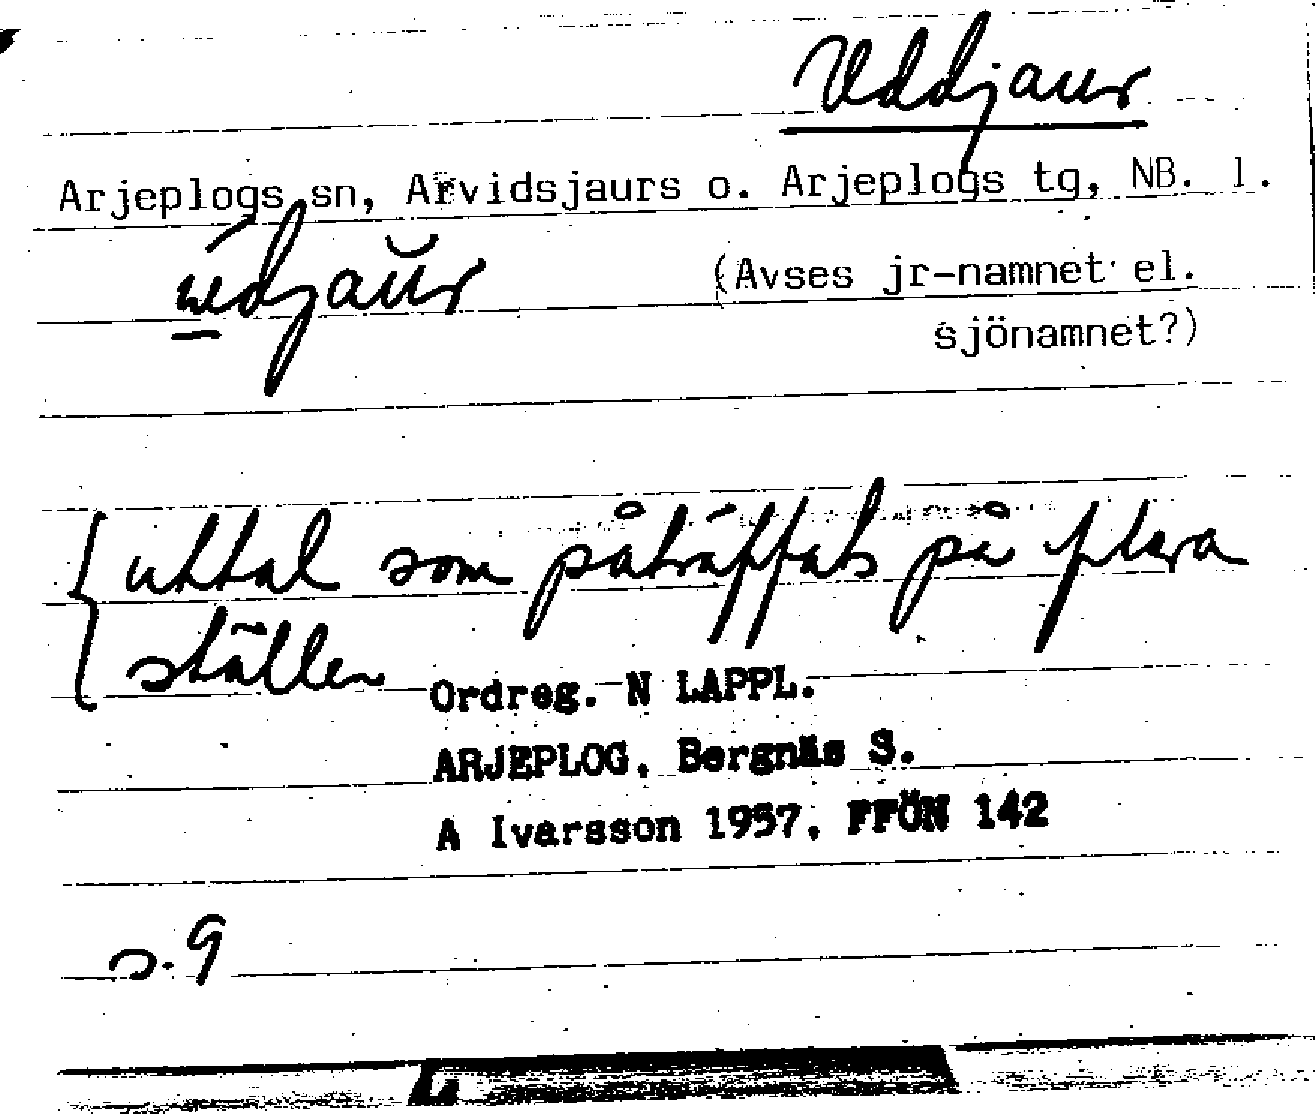 Uddjaur
Arjeplogs sn, Arvidsjaurs o. Arjeplogs tg, NB. l.
(Avses jr-namnet el.
sjönamnet?)
uttal som påträffats på flera
ställen
Ordreg. N LAPPL.
ARJEPLOG, Bergnäs S.
A Ivarsson 1957, FFÖN 142
s. 9